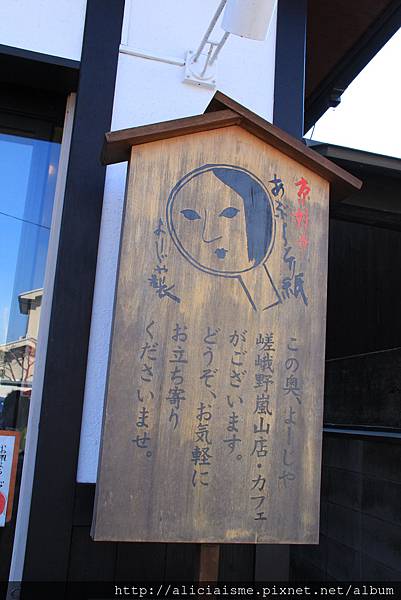 京都
あぶらとり紙
よーじや製
この奥、よーじや
嵯峨野嵐山店・カフェ
がございます。
どうぞ、お気軽に
お立ち寄り
くださいませ。
http://aliciaisme.pixnet.net/album